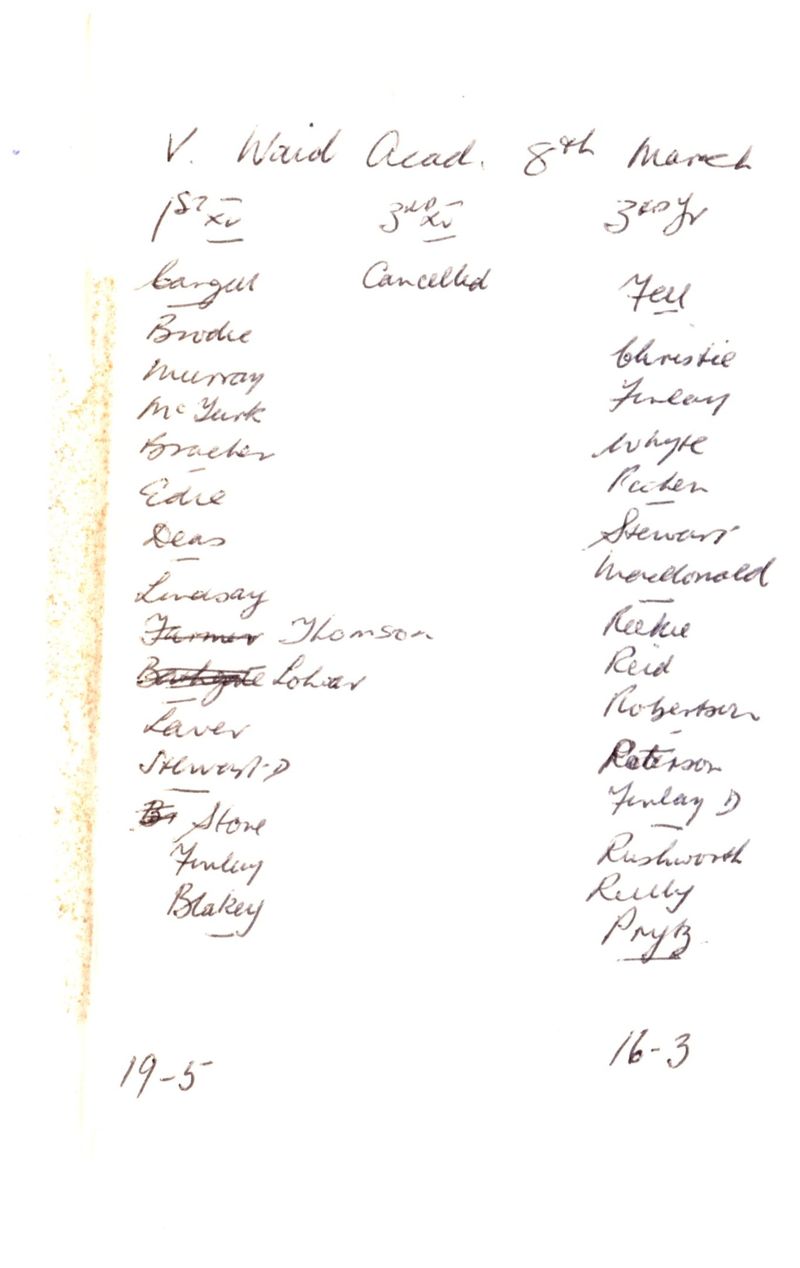 V. Waid Acad. 8th March
1ST XV 3RD XV 3RD Yr
Cargill Cancelled Fell
Brodie
Christie
Murray
Finlay
McTurk
Whyte
Edie
Stewart
Deas
Macdonald
Lindsay
Farmer Thomson Reekie
Bathgate Reid
Robertson
Laver
Paterson
Stewart D
Finlay D
Stone
Rushworth
Finlay
Reilly
Blakey
Prytz
19-5 16-3